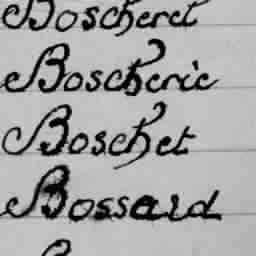 Boscheret
Boscherie
Boschet
Bossard